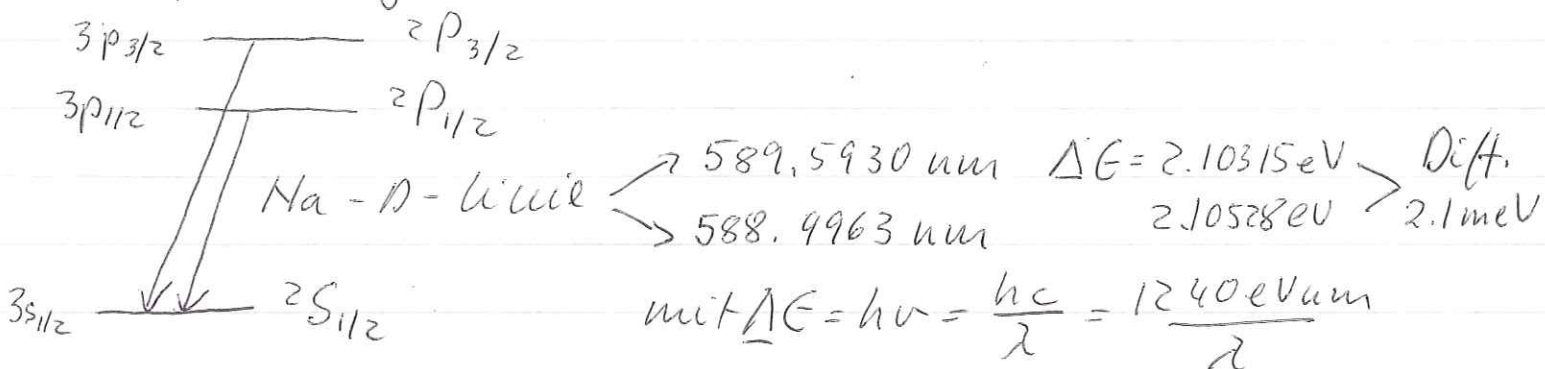 3p3/2 ²P3/2
3p1/2 ²P1/2
Na-D-Linie 589.5930 nm ΔE = 2.10315 eV Diff.
588.9963 nm 2.10528 eV 2.1 meV
3s1/2 ²S1/2 mit ΔE = hν = hc/λ = 1240 eVnm/λ